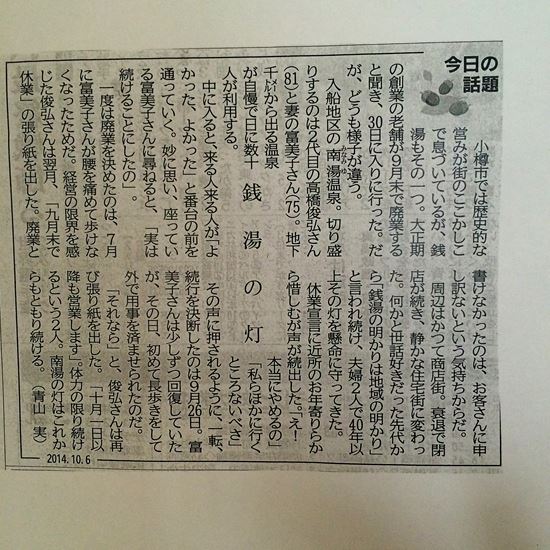 今日の
話題
銭湯の灯
小樽市では歴史的な
営みが街のここかしこ
で息づいているが、銭
湯もその一つ。大正期
の創業の老舗が９月末で廃業する
と聞き、30日に入りに行った。だ
が、どうも様子が違う。
入船地区の南湯温泉。切り盛
りするのは２代目の高橋俊弘さん
(81)と妻の富美子さん(75)。地下
千㍍から出る温泉
が自慢で日に数十
人が利用する。
中に入ると、来る人来る人が「よ
かった、よかった」と番台の前を
通っていく。妙に思い、座ってい
る富美子さんに尋ねると、「実は
続けることにしたの」。
一度は廃業を決めたのは、７月
に富美子さんが腰を痛めて歩けな
くなったためだ。経営の限界を感
じた俊弘さんは翌月、「九月末で
休業」の張り紙を出した。廃業と
書けなかったのは、お客さんに申
し訳ないという気持ちからだ。
周辺はかつて商店街。衰退で閉
店が続き、静かな住宅街に変わっ
た。何かと世話好きだった先代か
ら「銭湯の明かりは地域の明かり」
と言われ続け、夫婦２人で40年以
上その灯を懸命に守ってきた。
休業宣言に近所のお年寄りらか
ら惜しむが声が続出した。「え！
本当にやめるの」
「私らほかに行く
ところないべさ」
その声に押されるように、一転、
続行を決断したのは９月26日。富
美子さんは少しずつ回復していた
が、その日、初めて長歩きをして
外で用事を済ませられたのだ。
「それなら」と、俊弘さんは再
び張り紙を出した。「十月一日以
降も営業します」。体力の限り続け
るという２人。南湯の灯はこれか
らもともり続ける。（青山　実）
2014.10.6